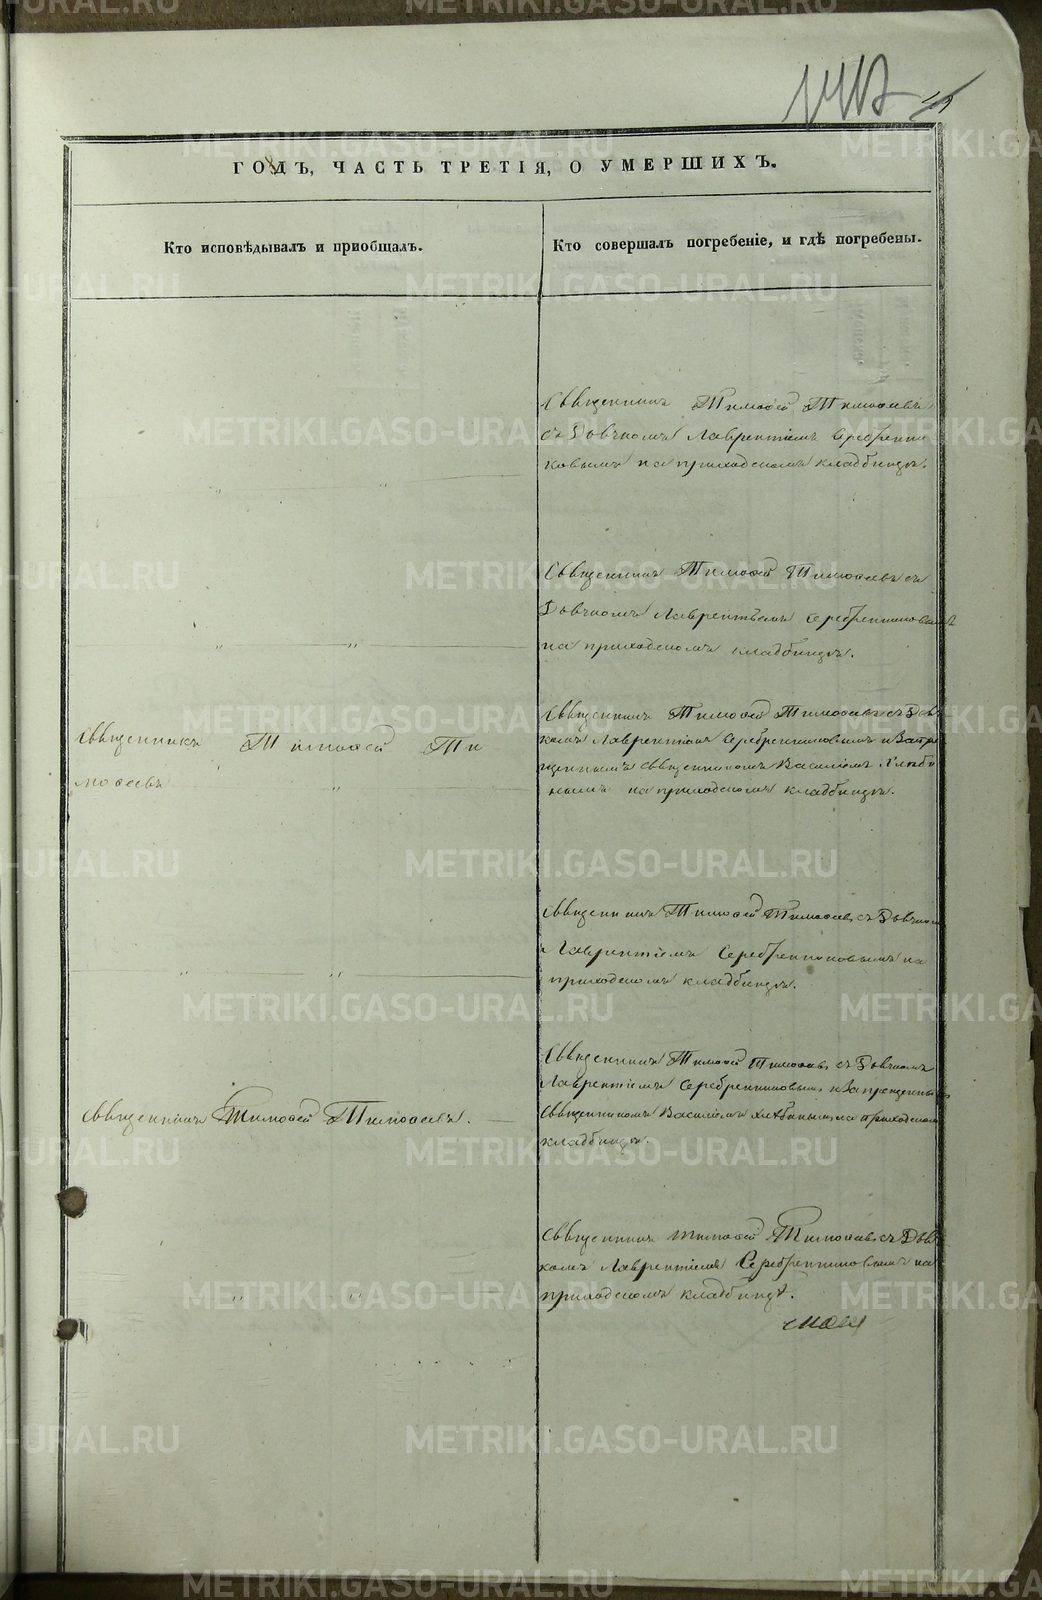 ГОДЪ, ЧАСТЬ ТРЕТІЯ, О УМЕРШИХЪ.
Кто исповѣдывалъ и приобщалъ.
Кто совершалъ погребеніе, и гдѣ погребены.
Священникъ Тимоѳей Тимоѳеевъ
съ Дьячкомъ Лаврентіемъ Серебренни
ковымъ на приходскомъ кладбищѣ.
Священникъ Тимоѳей Тимоѳеевъ съ
Дьячкомъ Лаврентіемъ Серебренниковымъ
на приходскомъ кладбищѣ.
Священникъ Тимоѳей Ти
моѳеевъ
Священникъ Тимоѳей Тимоѳеевъ съ Дьяч
комъ Лаврентіемъ Серебренниковымъ и Запре
щеннымъ Священникомъ Василіемъ Хлѣби
нымъ на приходскомъ кладбищѣ.
Священникъ Тимоѳей Тимоѳеевъ съ Дьячкомъ
Лаврентіемъ Серебренниковымъ на
приходскомъ кладбищѣ.
Священникъ Тимоѳей Тимоѳеевъ.
Священникъ Тимоѳей Тимоѳеевъ съ Дьячкомъ
Лаврентіемъ Серебренниковымъ и Запрещеннымъ
Священникомъ Василіемъ Хлѣбинымъ на приходскомъ
кладбищѣ.
Священникъ Тимоѳей Тимоѳеевъ съ Дьяч
комъ Лаврентіемъ Серебренниковымъ на
приходскомъ кладбищѣ.
METRIKI.GASO-URAL.RU